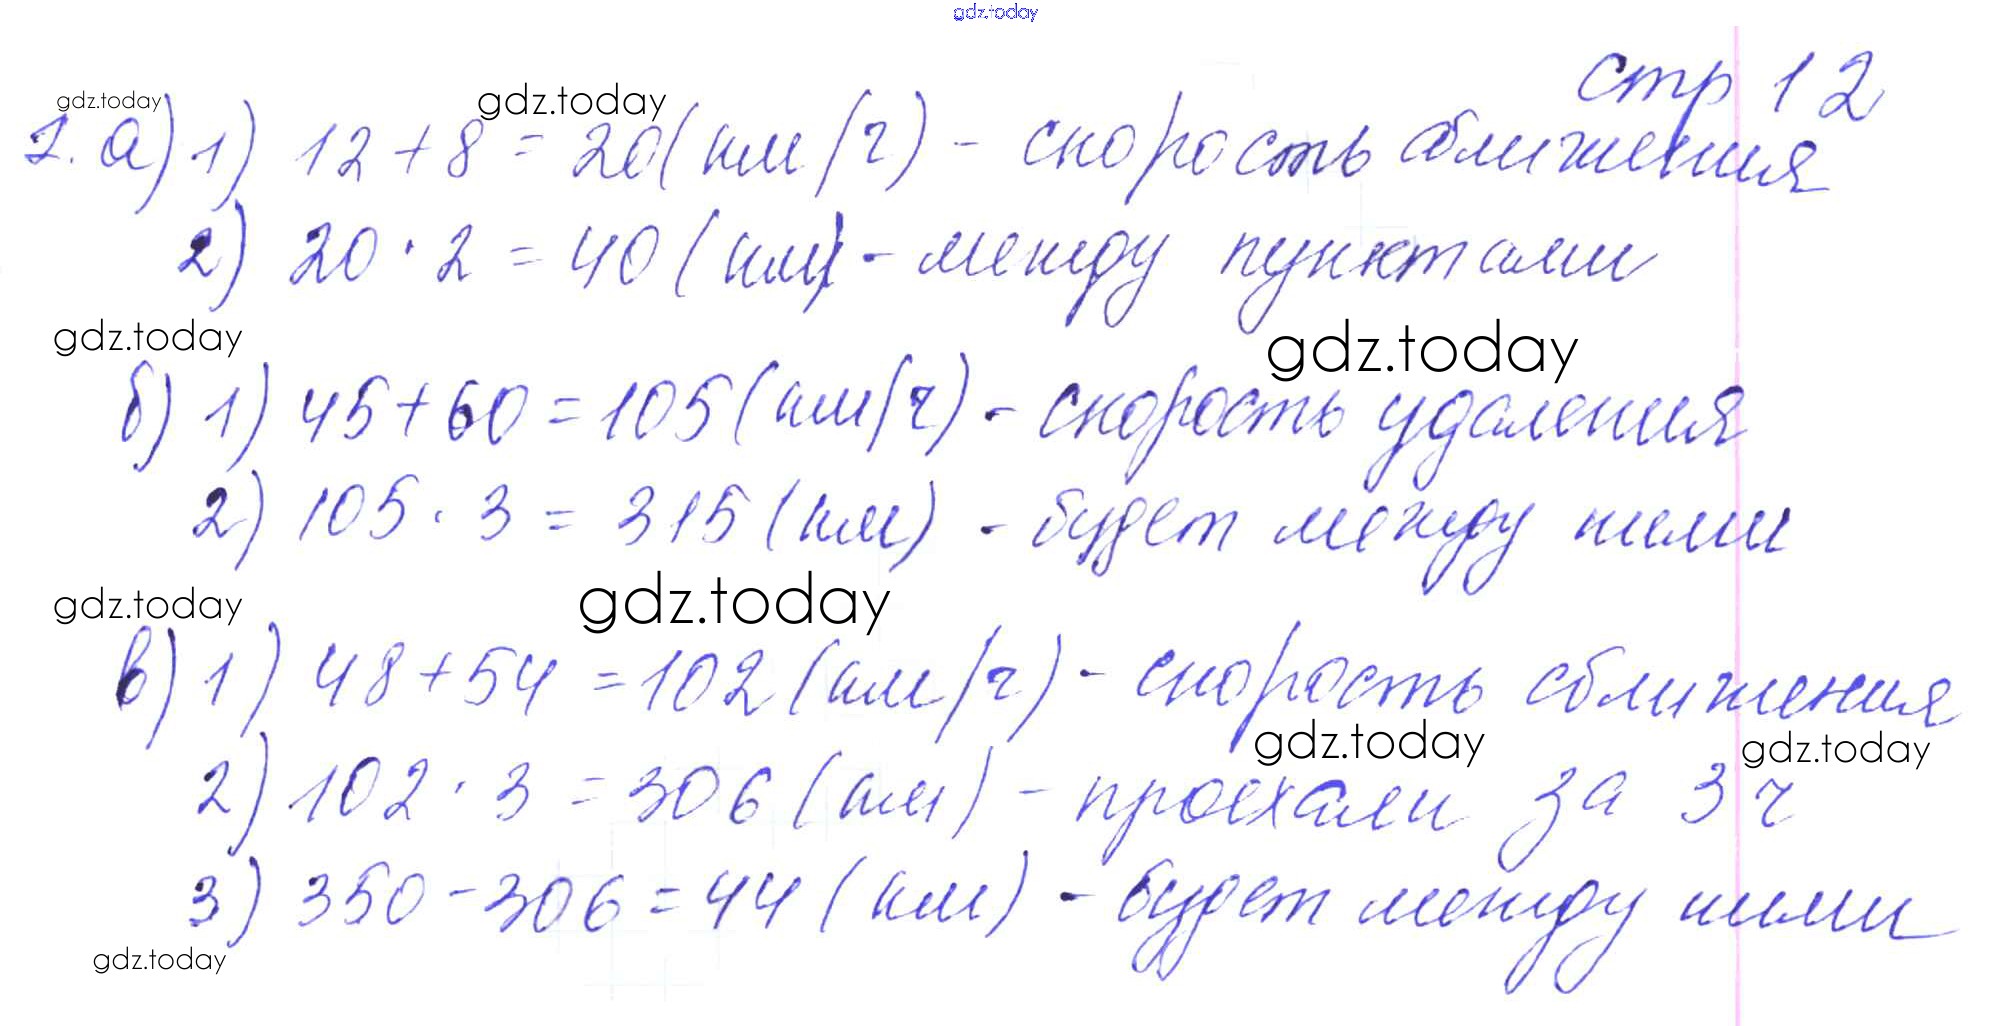 gdz.today
стр 12
gdz.today gdz.today
1. а) 1) 12 + 8 = 20 (км/ч) - скорость сближения
2) 20 · 2 = 40 (км) - между пунктами
gdz.today gdz.today
б) 1) 45 + 60 = 105 (км/ч) - скорость удаления
2) 105 · 3 = 315 (км) - будет между ними
gdz.today gdz.today
в) 1) 48 + 54 = 102 (км/ч) - скорость сближения
gdz.today gdz.today
2) 102 · 3 = 306 (км) - проехали за 3 ч
3) 350 - 306 = 44 (км) - будет между ними
gdz.today